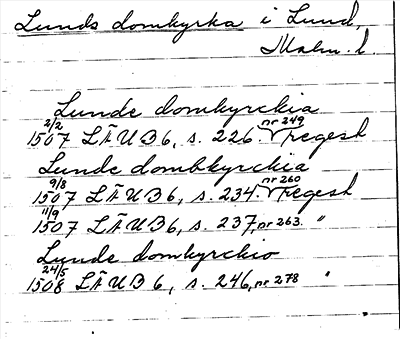 Lunds domkyrka i Lund,
Malm. l.
Lunde domkyrckia
2/2 1507 LÄUB 6, s. 226. nr 249 Regest
Lunde dombkyrckia
9/8 1507 LÄUB 6, s. 234. nr 260 Regest
11/9 1507 LÄUB 6, s. 237, nr 263. "
Lunde domkyrckio
24/5 1508 LÄUB 6, s. 246, nr 278 "